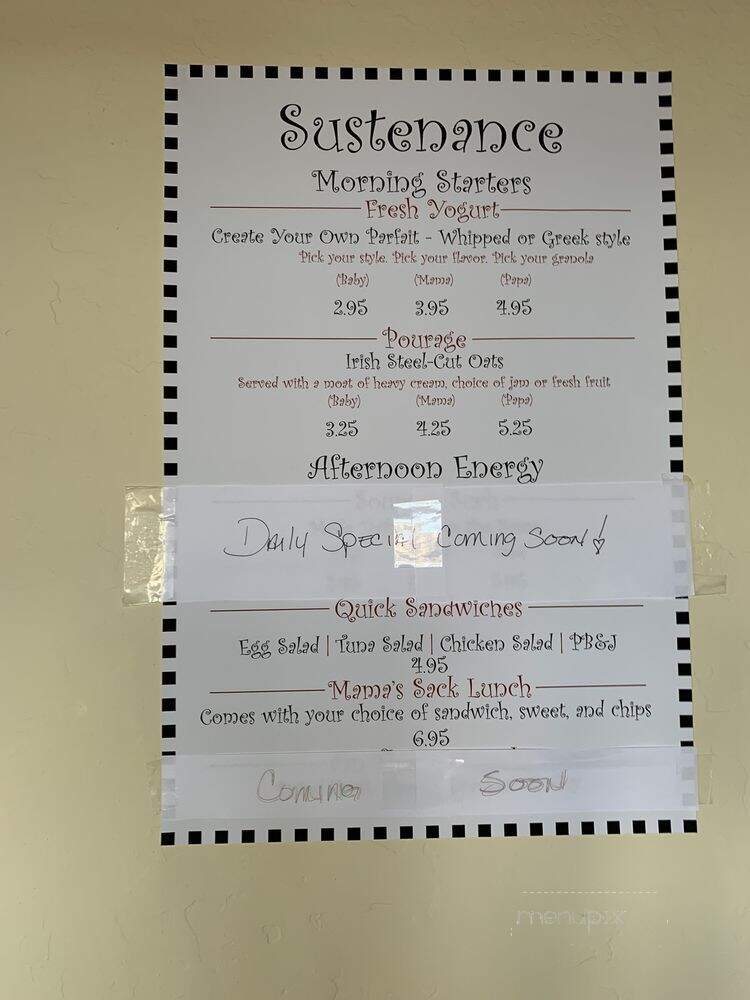 Sustenance
Morning Starters
Fresh Yogurt
Create Your Own Parfait - Whipped or Greek style
Pick your style. Pick your flavor. Pick your granola
(Baby) (Mama) (Papa)
2.95 3.95 4.95
Pourage
Irish Steel-Cut Oats
Served with a moat of heavy cream, choice of jam or fresh fruit
(Baby) (Mama) (Papa)
3.25 4.25 5.25
Afternoon Energy
Daily Special Coming Soon!
Quick Sandwiches
Egg Salad | Tuna Salad | Chicken Salad | PB&J
4.95
Mama's Sack Lunch
Comes with your choice of sandwich, sweet, and chips
6.95
Coming Soon
menupix